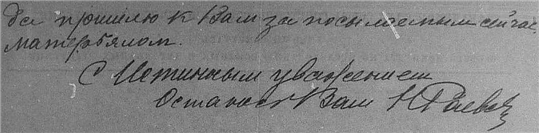 да пришлю к Вам за посылаемым сейчас
матерьялом.
С Истинным уважением
Остаюсь Вам Н Раевск